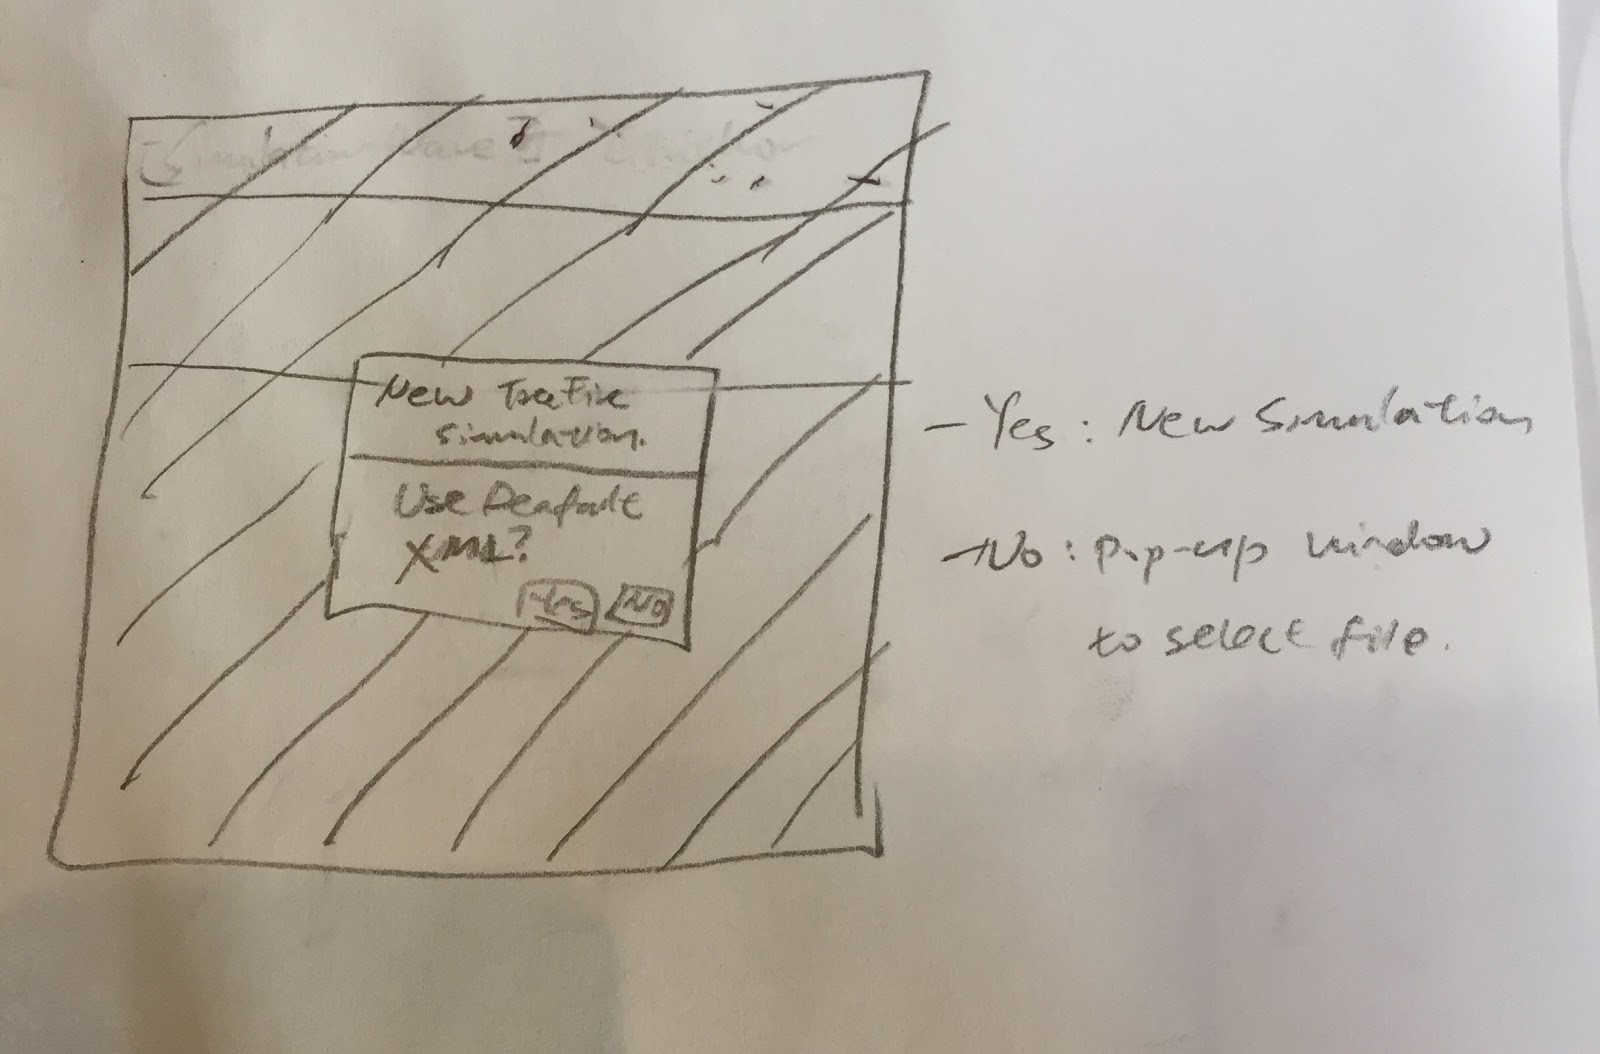 New Traffic
simulation.
Use Deafault
XML?
Yes No
- Yes : New Simulation
- No : Pop-up window
to select file.